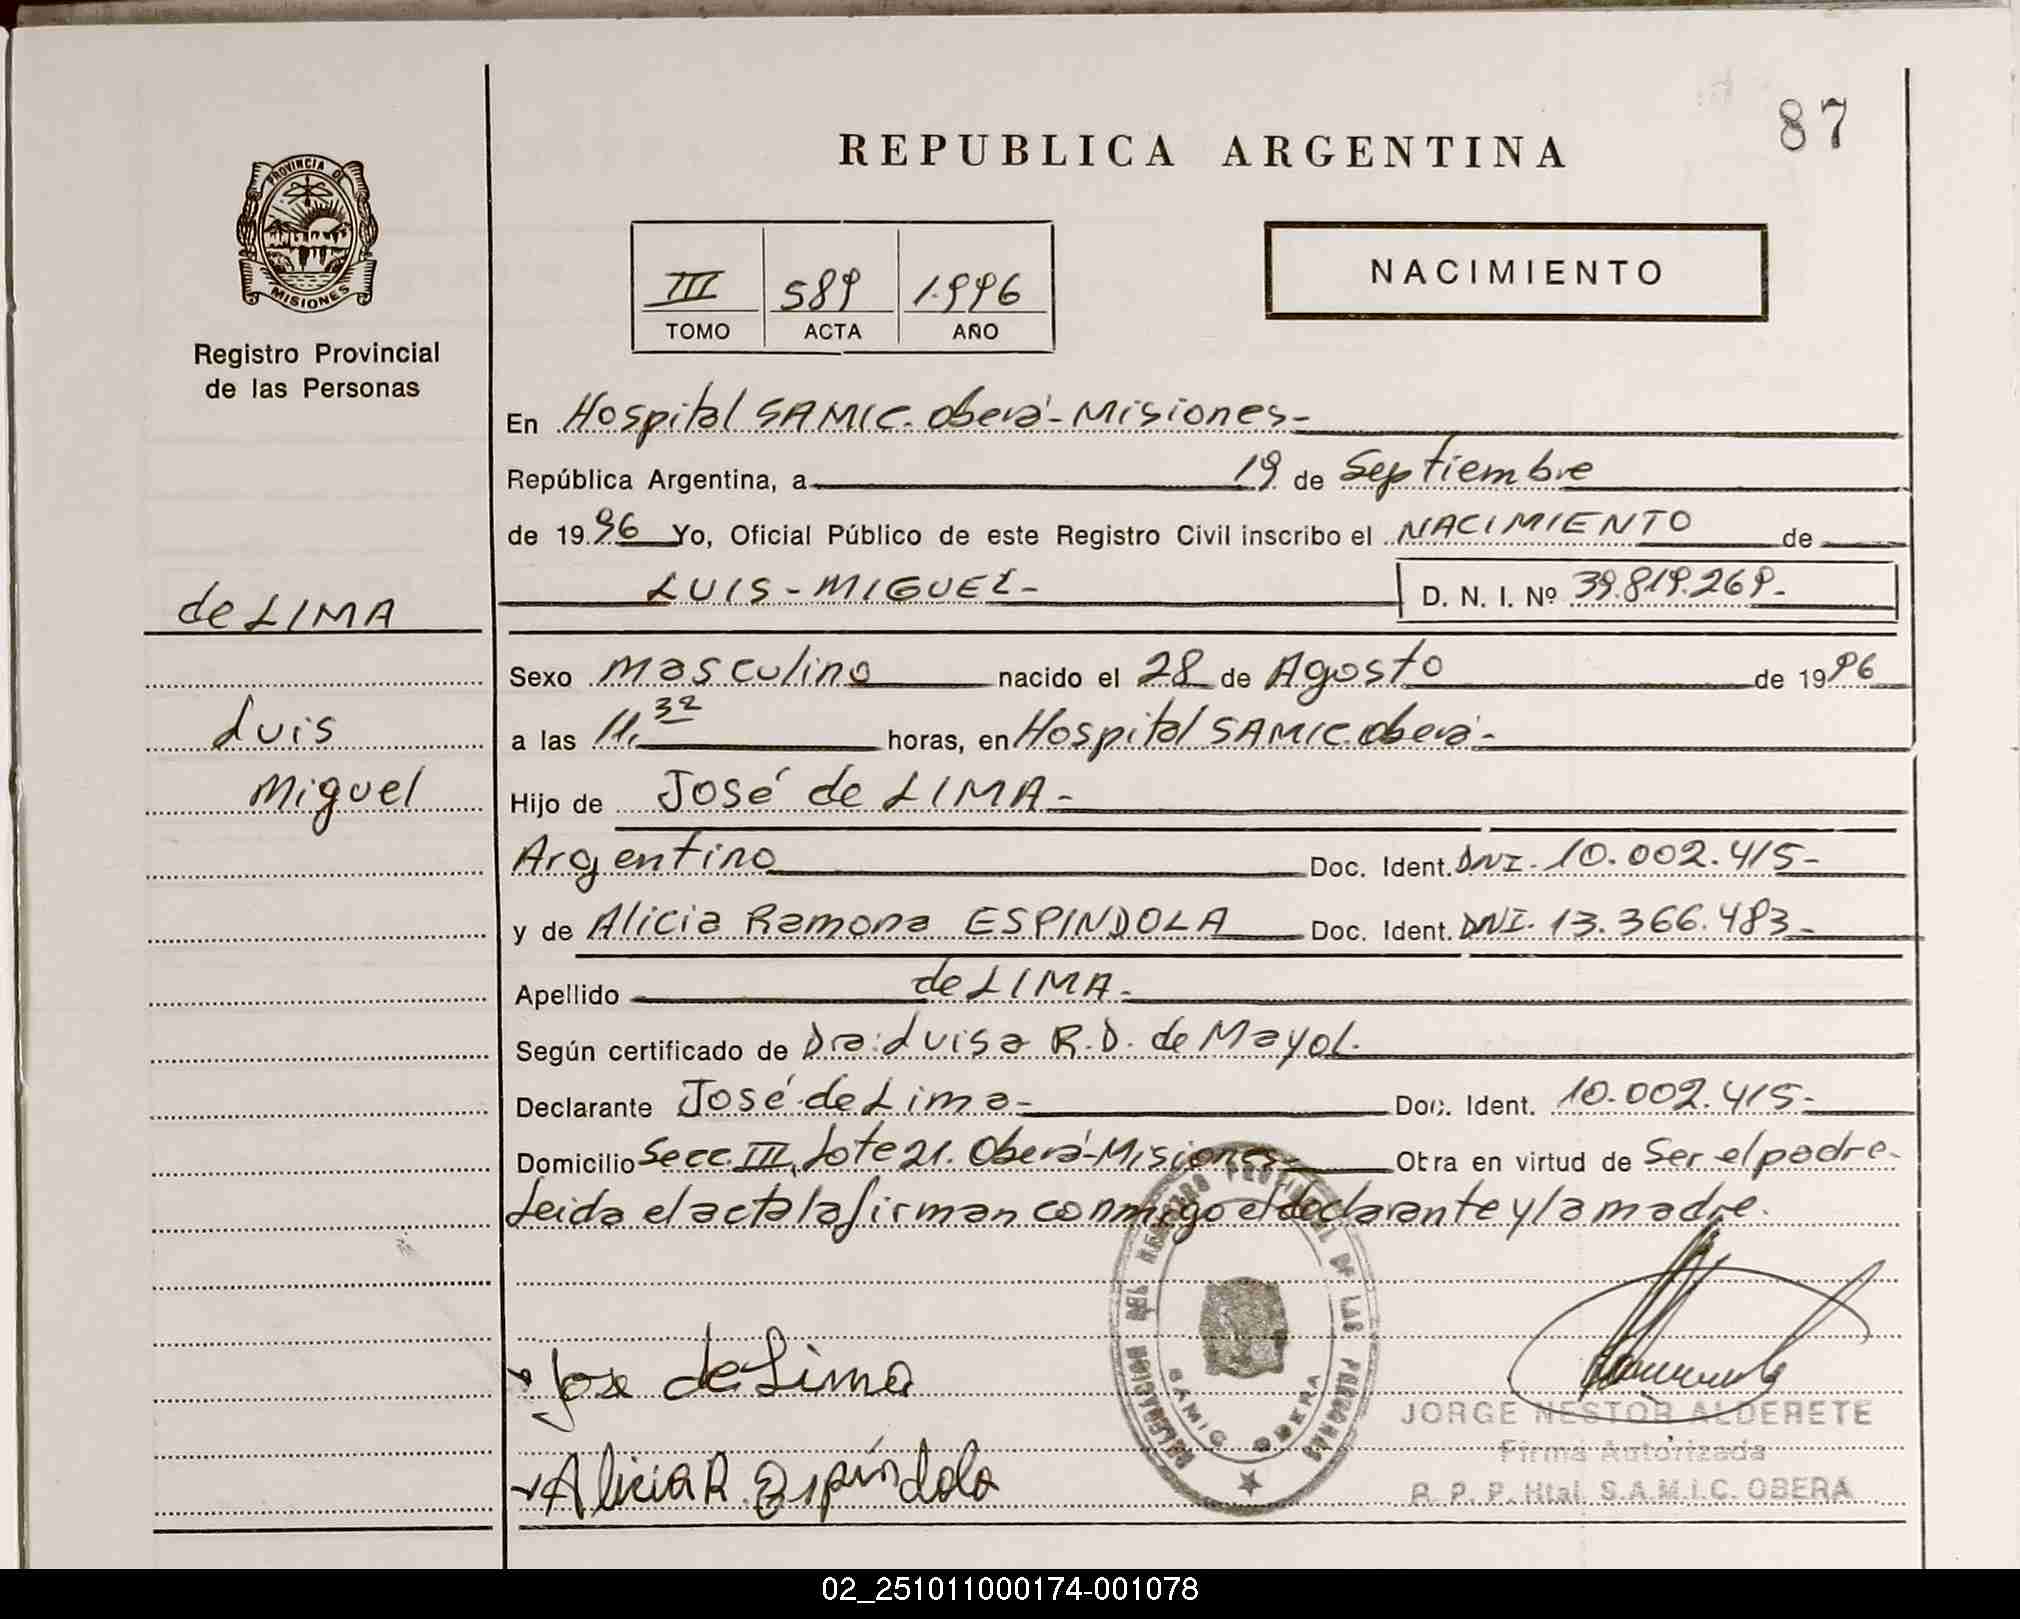 87
REPUBLICA ARGENTINA
PROVINCIA DE
MISIONES
Registro Provincial
de las Personas
III 589 1.996
TOMO ACTA AÑO
NACIMIENTO
En Hospital SAMIC. Oberá-Misiones-
República Argentina, a 19 de Septiembre
de 1996 Yo, Oficial Público de este Registro Civil inscribo el NACIMIENTO de
LUIS-MIGUEL- D. N. I. Nº 39.819.269.-
de LIMA
Sexo masculino nacido el 28 de Agosto de 1996
Luis
a las 11, horas, en Hospital SAMIC. Oberá-
Miguel
Hijo de José de LIMA-
Argentino Doc. Ident. DNI. 10.002.415-
y de Alicia Ramona ESPINDOLA Doc. Ident. DNI. 13.366.483-
Apellido de LIMA-
Según certificado de Dra: Luisa R.D. de Mayol.
Declarante José de Lima- Doc. Ident. 10.002.415-
Domicilio Secc. III, Lote 21. Oberá-Misiones- Obra en virtud de Ser el padre-
Leida el acta la firman conmigo el declarante y la madre.
DELEGACION DEL REGISTRO PROVINCIAL DE LAS PERSONAS
SAMIC OBERA
Jose de Lima
JORGE NESTOR ALDERETE
Firma Autorizada
R. P. P. Htal. S.A.M.I.C. OBERA
Alicia R. Espíndola
02_251011000174-001078